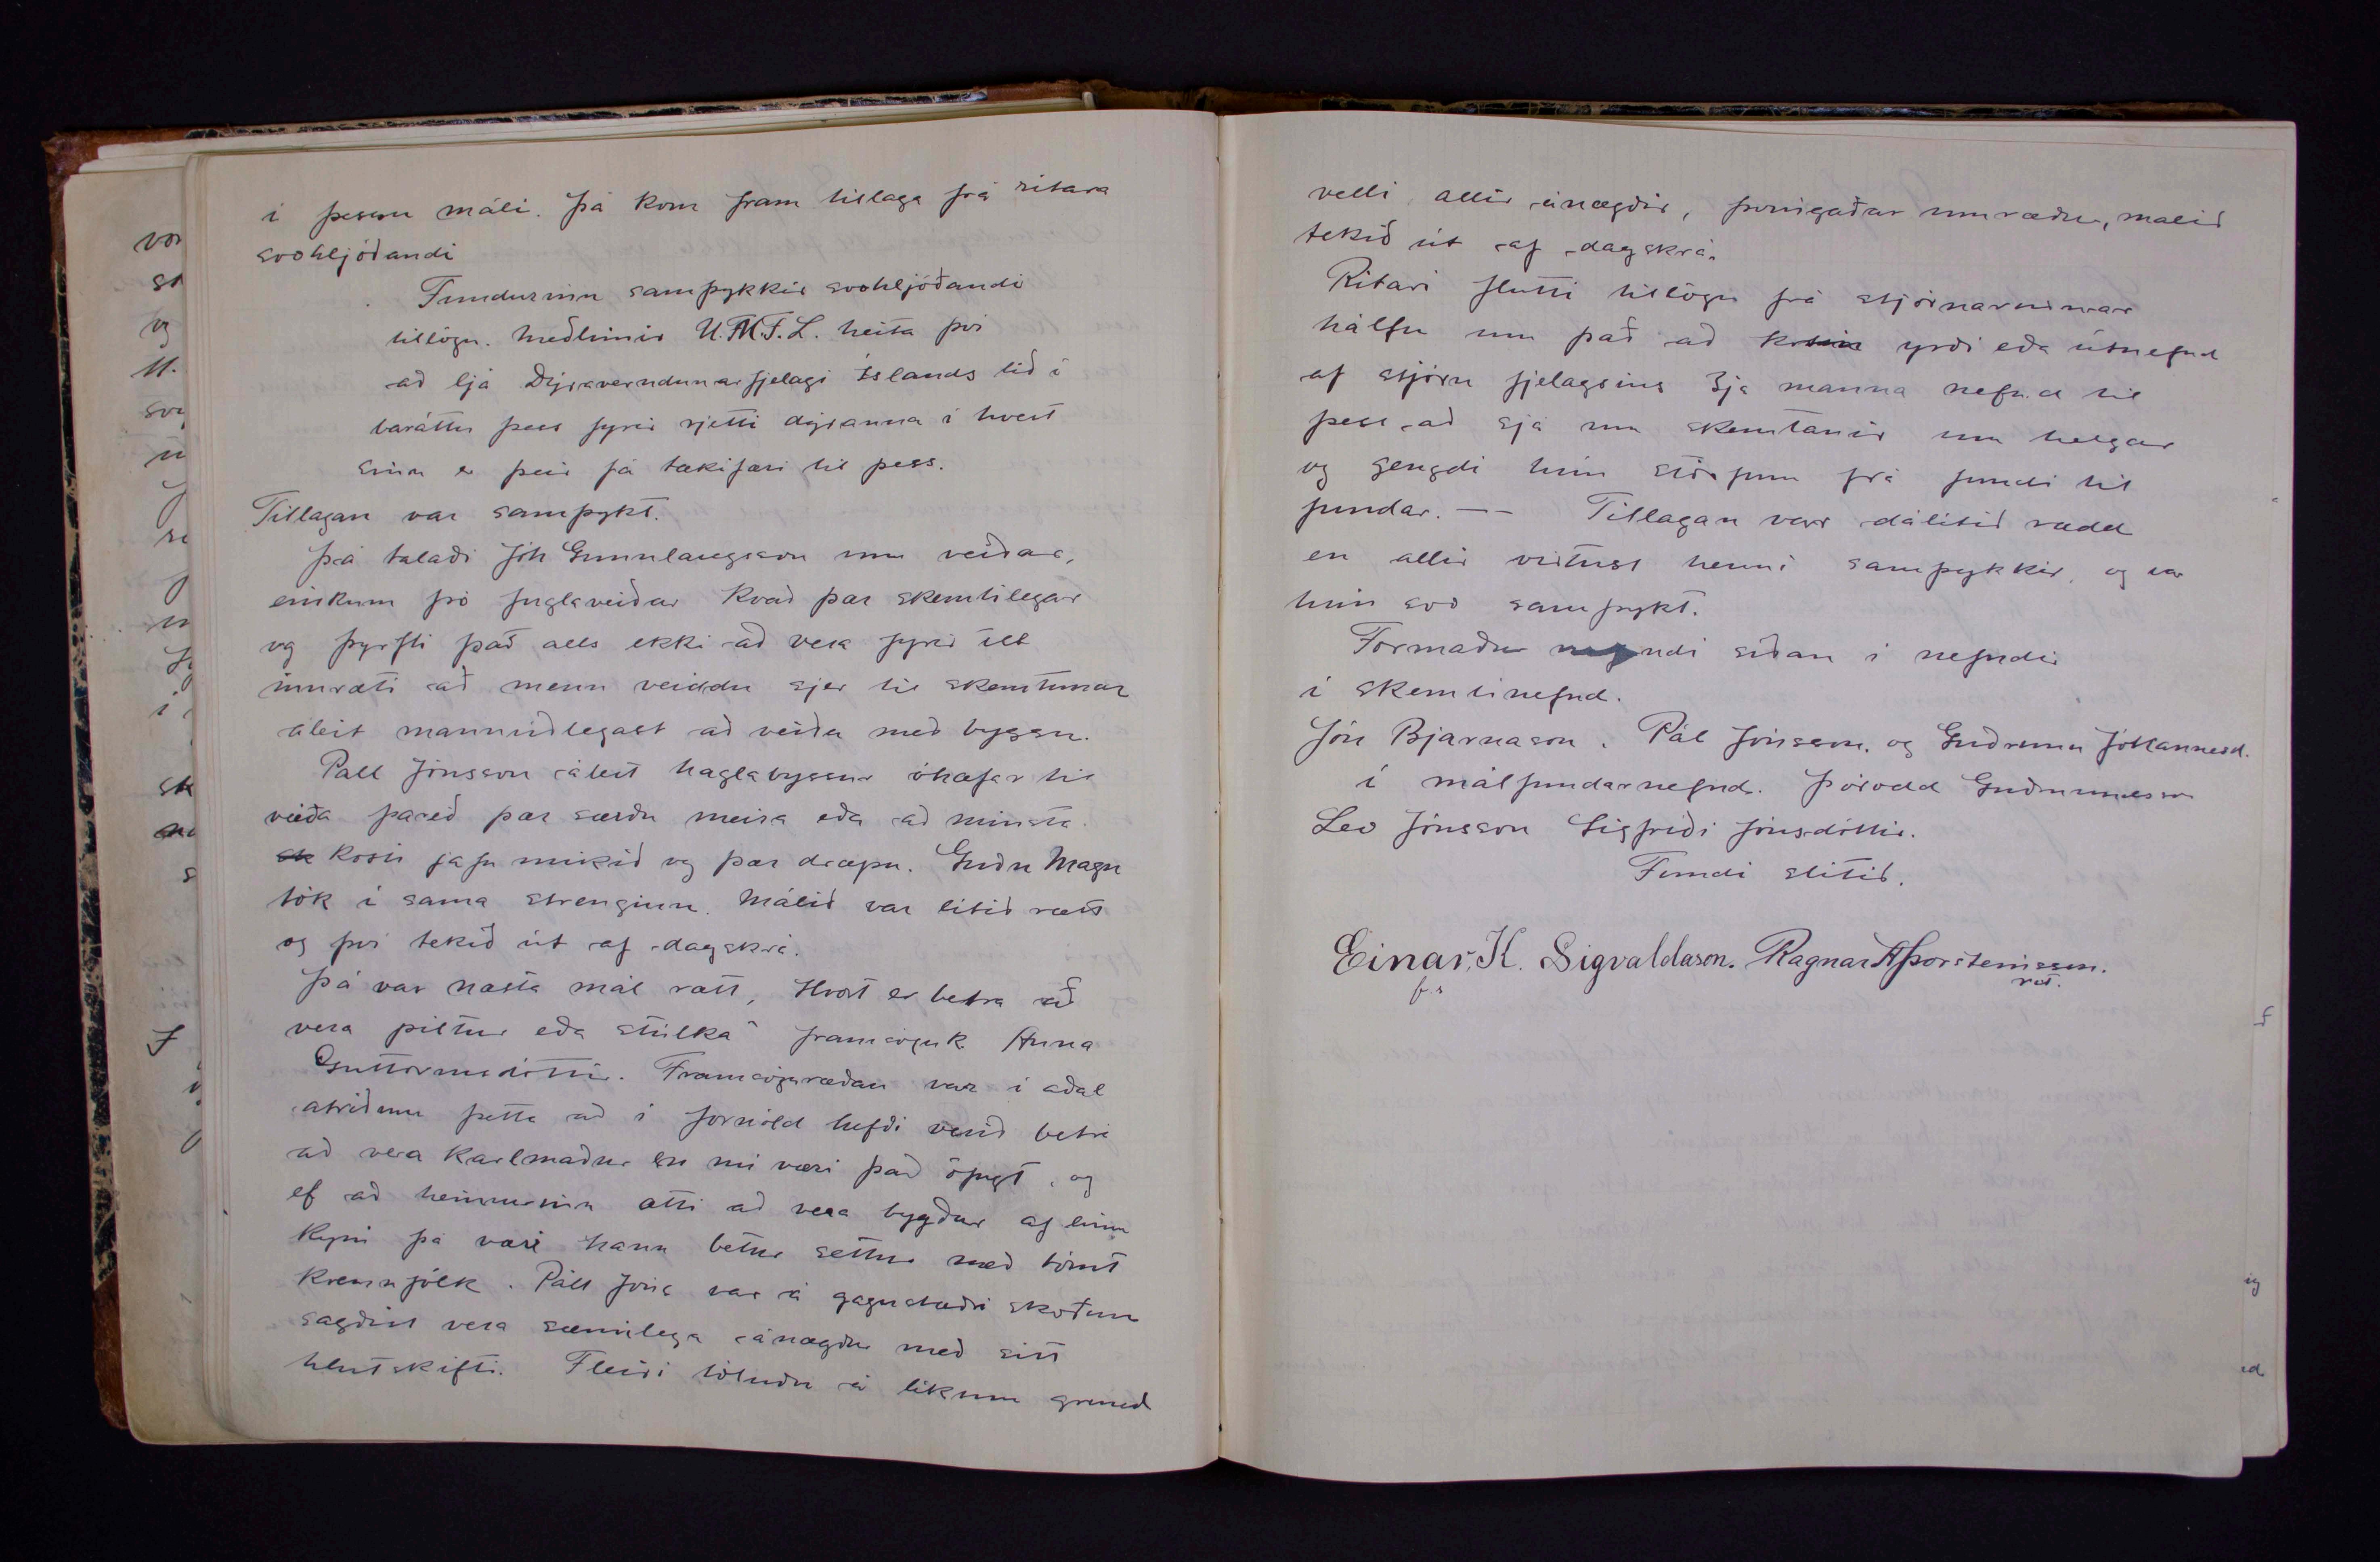 í þessu máli. þá kom fram tillaga frá ritara
svohljóðandi
Fundurinn samþykkir svohljóðandi
tillögu. Meðlimir U.M.F.L. heita því
að ljá Dýraverndunarfjelagi Íslands lið í
baráttu þess fyrir rjetti dýranna í hvert
sinn er þeir fá tækifæri til þess.
Tillagan var samþykt.
Þá talaði Jóh Gunnlaugsson um veiðar,
einkum þó fuglaveiðar kvað þær skemtilegar
og þyrfti það alls ekki að vera fyrir ilt
innræti að menn veiddu sjer til skemtunar
áleit mannúðlegast að veiða með byssu.
Páll Jónsson áleit haglabyssur óhæfar til
veiða þareð þær særðu meira eða að minsta
kosti jafn mikið og þær dræpu. Guðm Magn
tók í sama strenginn. Málið var lítið rætt
og því tekið út af dagskrá.
Þá var næsta mál rætt, Hvort er betra að
vera piltur eða stúlka" framsöguk Anna
Guttormsdóttir. Framsöguræðan var í aðal
atriðum þetta að í fornöld hefði verið betra
að vera karlmaður en nú væri það öfugt, og
ef að heimurinn ætti að vera bygður af einu
kyni þá væri hann betur settur með tómt
kvennfólk. Páll Jóns var á gagnstæðri skoðun
sagðist vera sæmilega ánægður með sitt
hlutskifti. Fleiri töluðu á líkum grund
velli allir ánægðir, þvingaðar umræður, málið
tekið út af dagskrá.
Ritari flutti tillögu frá stjórnarinnar
hálfu um það að kosin yrði eða útnefnd
af stjórn fjelagsins 3ja manna nefnd til
þess að sjá um skemtanir um helgar
og gengdi hún störfum frá fundi til
fundar. — Tillagan var dálítið rædd
en allir virtust henni samþykkir, og var
hún svo samþykt.
Formaður nefndi síðan í nefndir
í skemtinefnd.
Jón Bjarnason. Pál Jónsson. og Guðrúnu Jóhannesd.
í málfundarnefnd. Þórodd Guðmundsson
Leo Jónsson Sigfríði Jónsdóttir.
Fundi slitið.
Einar K. Sigvaldason. Ragnar A Þorsteinsson.
f.s rit.